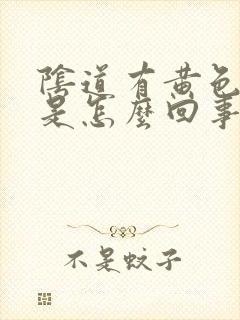 陰道有黃色
是怎麼回事
不是蚊子